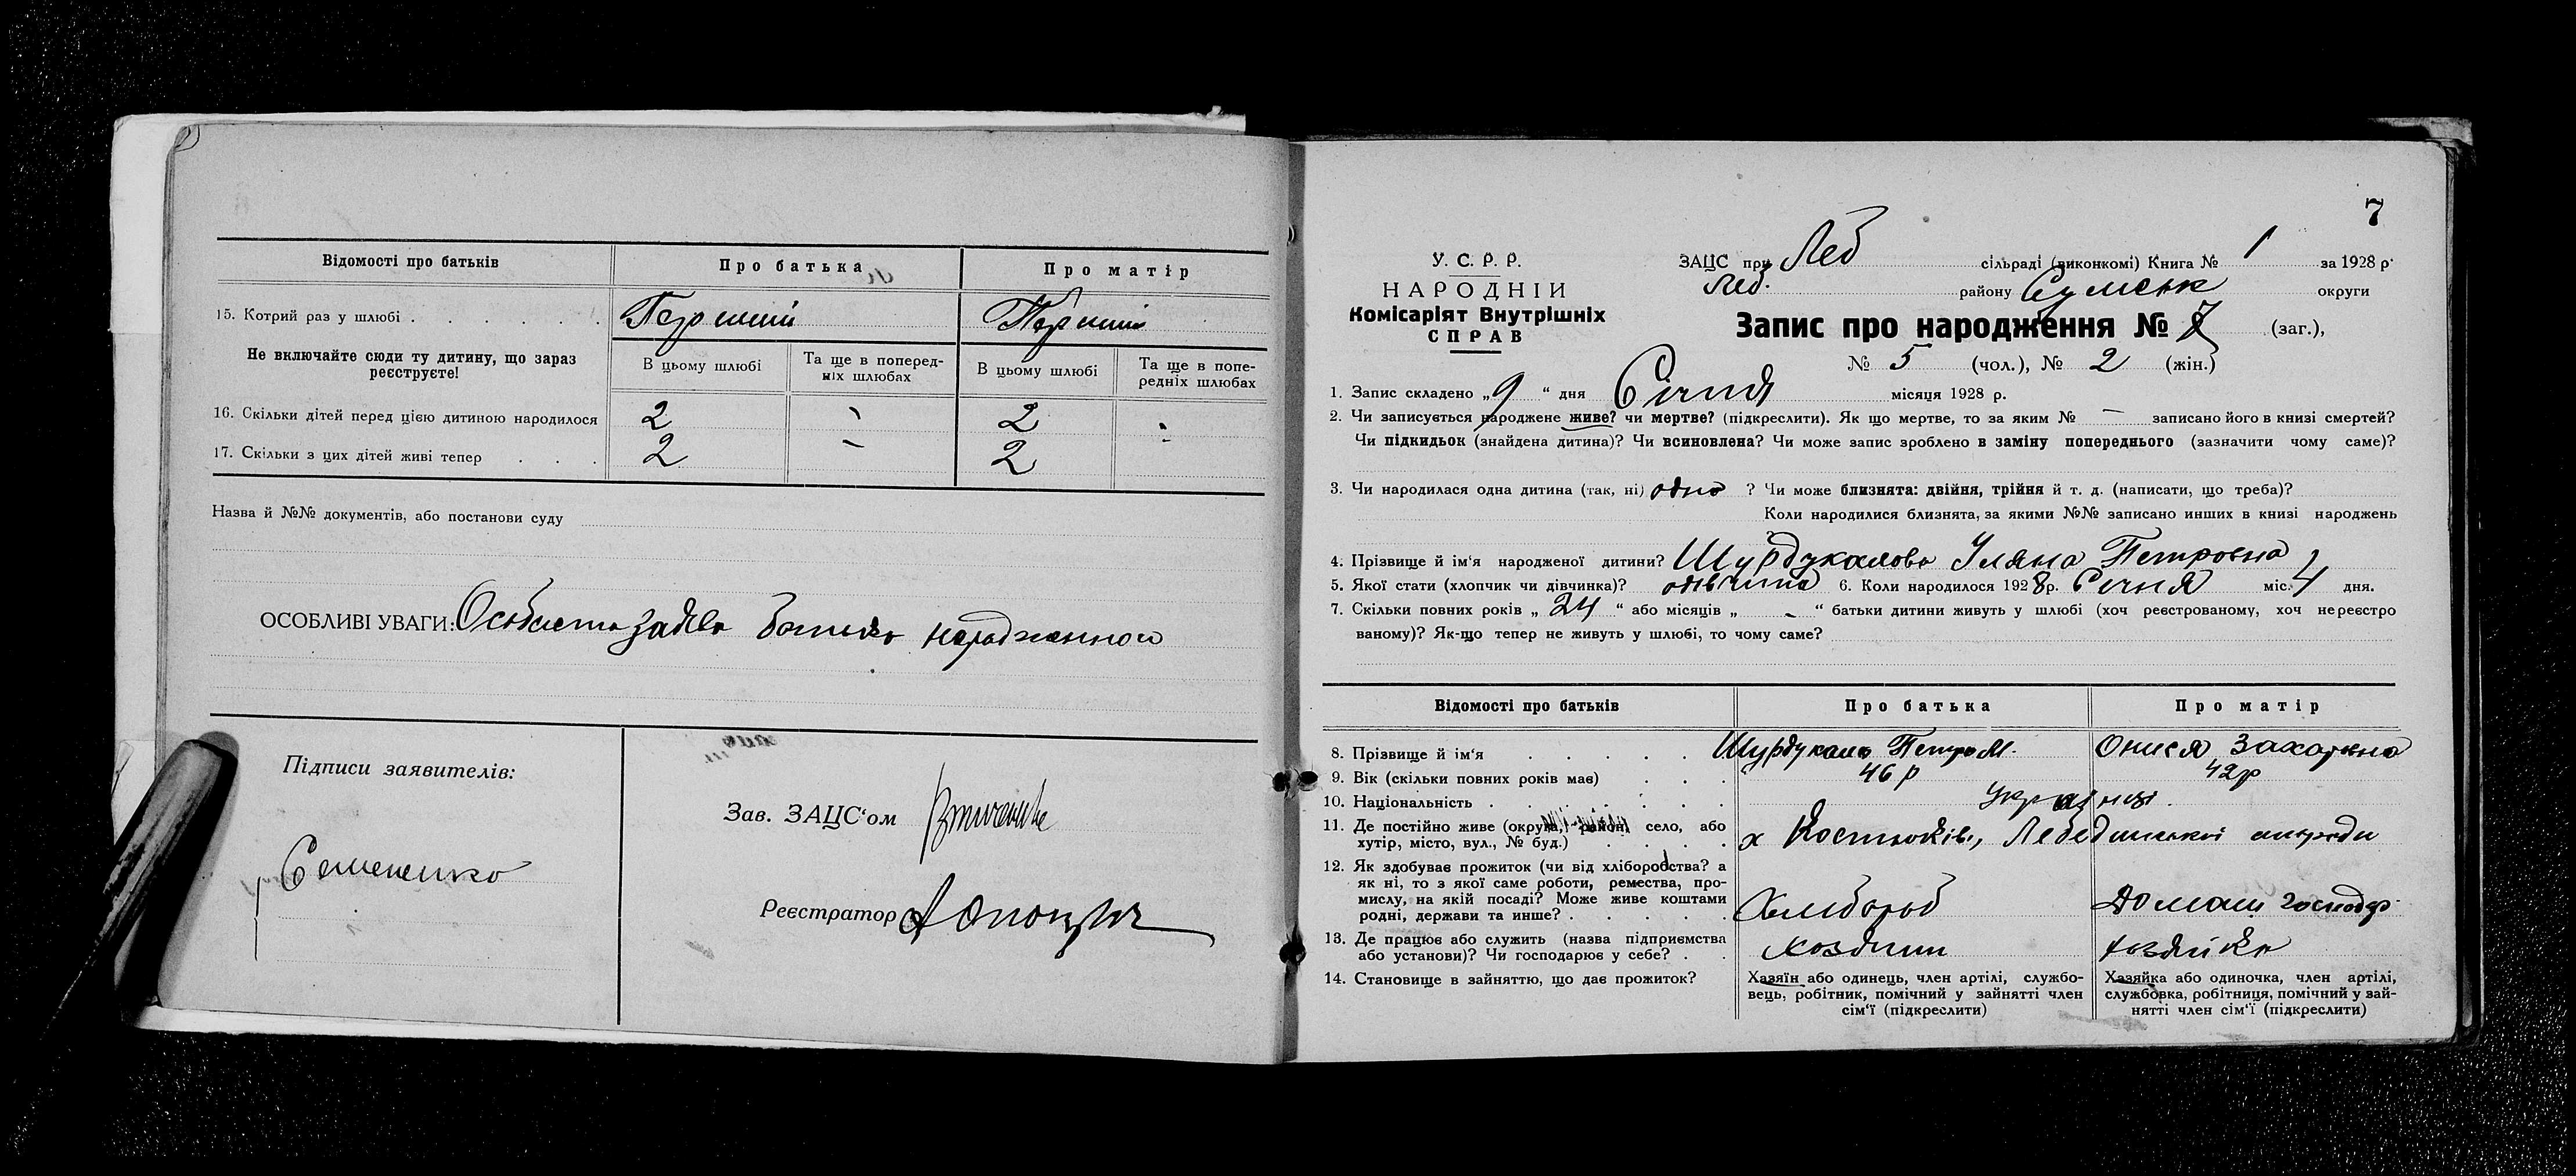 Відомості про батьків
Про батька
Про матір
15. Котрий раз у шлюбі
Перший
Перший
Не включайте сюди ту дитину, що зараз реєструєте!
В цьому шлюбі
Та ще в поперед-
ніх шлюбах
В цьому шлюбі
Та ще в попе-
редніх шлюбах
16. Скільки дітей перед цією дитиною народилося
2
2
17. Скільки з цих дітей живі тепер
2
2
Назва й №№ документів, або постанови суду
ОСОБЛИВІ УВАГИ: Особиста заява батька народженної
Підписи заявителів:
Семененко
Зав. ЗАЦС‘ом
Реєстратор
7
У. С. Р. Р.
НАРОДНІЙ
Комісаріят Внутрішніх
СПРАВ
ЗАЦС при Леб сільраді (виконкомі) Книга № 1 за 1928 р.
Леб. району Сумськ округи
Запис про народження № 7 (заг.),
№ 5 (чол.), № 2 (жін.)
1. Запис складено „9“ дня Січня місяця 1928 р.
2. Чи записується народжене живе? чи мертве? (підкреслити). Як що мертве, то за яким № — записано його в книзі смертей?
Чи підкидьок (знайдена дитина)? Чи всиновлена? Чи може запис зроблено в заміну попереднього (зазначити чому саме)?
3. Чи народилася одна дитина (так, ні) одно ? Чи може близнята: двійня, трійня й т. д. (написати, що треба)?
Коли народилися близнята, за якими №№ записано инших в книзі народжень
4. Прізвище й ім‘я народженої дитини? Шурдукалова Уляна Петровна
5. Якої стати (хлопчик чи дівчинка)? дівчина 6. Коли народилося 1928 р. Січня міс. 4 дня.
7. Скільки повних років „24“ або місяців „-“ батьки дитини живуть у шлюбі (хоч реєстрованому, хоч нереєстро
ваному)? Як-що тепер не живуть у шлюбі, то чому саме?
Відомості про батьків
Про батька
Про матір
8. Прізвище й ім‘я
Шурдукало Петро М.
Онися Захаровна
9. Вік (скільки повних років має)
46 р
42 р
10. Національність
Українці.
11. Де постійно живе (округа, район, село, або
хутір, місто, вул., № буд.)
х Костюків, Лебединської
12. Як здобуває прожиток (чи від хліборобства? а
як ні, то з якої саме роботи, ремества, про-
мислу, на якій посаді? Може живе коштами
родні, держави та инше?
Хлібороб
Домаш господар.
13. Де працює або служить (назва підприємства
або установи)? Чи господарює у себе?
хозяин
хозяйка
14. Становище в зайняттю, що дає прожиток?
Хазяїн або одинець, член артілі, службо-
вець, робітник, помічний у зайнятті член
сім‘ї (підкреслити)
Хазяйка або одиночка, член артілі,
службовка, робітниця, помічний у зай-
нятті член сім‘ї (підкреслити)